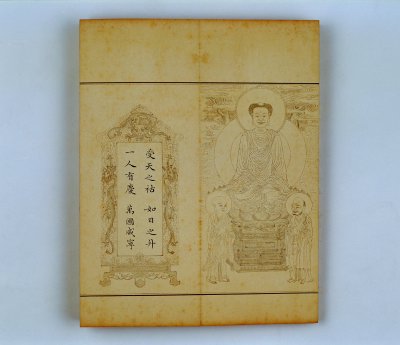 受天之祜 如日之升
一人有慶 萬國咸寧